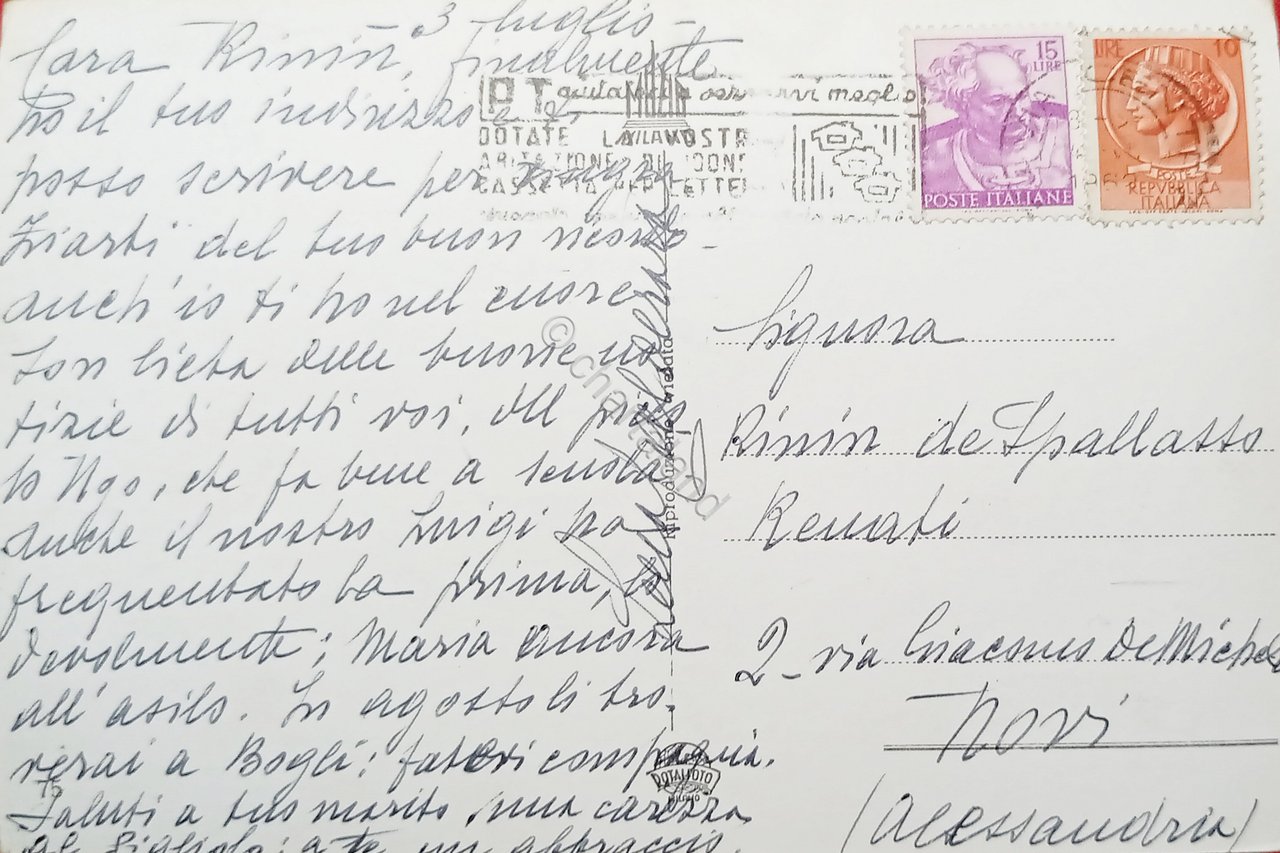 3 luglio -
Cara Rinin, finalmente
ho il tuo indirizzo e
posso scrivere per ringra
ziarti del tuo buon ricordo -
anch'io ti ho nel cuore
Son lieta delle buone no
tizie di tutti voi, del picco
lo Ugo, che fa bene a scuola
anche il nostro Luigi ha
frequentato la prima, lo
devolmente; Maria ancora
all'asilo. In agosto li tro-
verai a Bogli: fatevi compagnia.
Saluti a tuo marito, una carezza
al figliolo; a te un abbraccio.
75
P.T. aiutateci a servirvi meglio
DOTATE LA VOSTR
ABITAZIONE DI IDON
CASSETTA PER LETTER
MILANO
15
LIRE
POSTE ITALIANE
LIRE 10
POSTE
REPVBBLICA
ITALIANA
Riproduzione vietata
© chartaland
DOTALFOTO
MILANO
Signora
Rinin de Spallasso
Renati
2 - via Giacomo De Michel
Novi
(Alessandria)